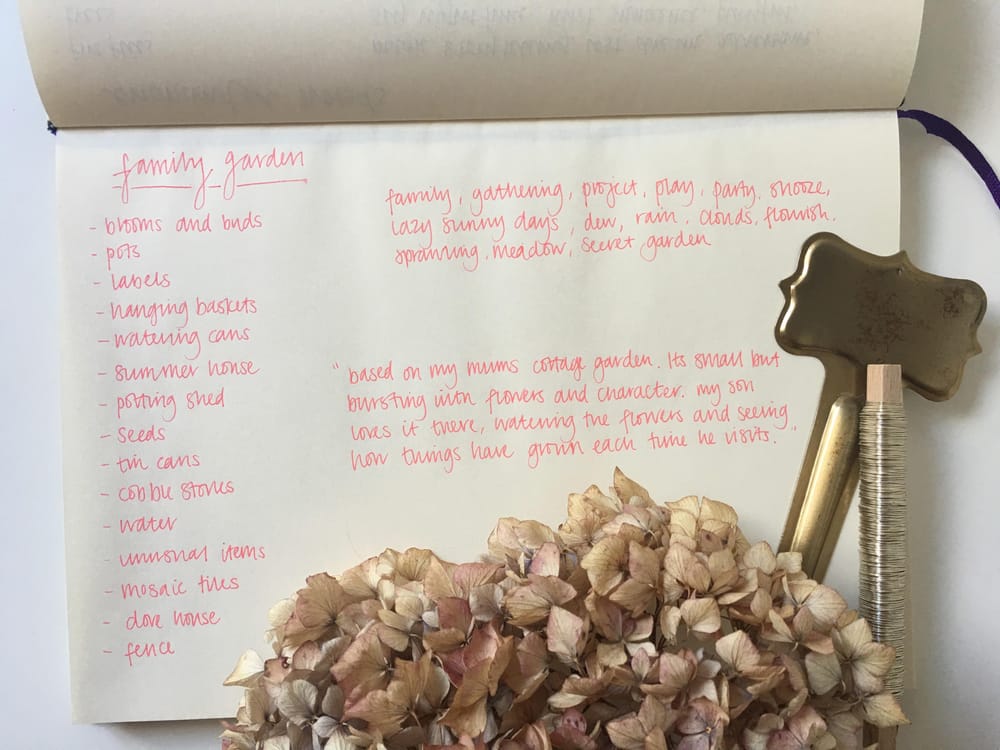 family garden
- blooms and buds
- pots
- labels
- hanging baskets
- watering cans
- summer house
- potting shed
- seeds
- tin cans
- cobble stones
- water
- unusual items
- mosaic tiles
- dove house
- fence
family, gathering, project, play, party, snooze,
lazy sunny days, dew, rain, clouds, flourish,
sprawling, meadow, secret garden
"based on my mums cottage garden. Its small but
bursting with flowers and character. my son
loves it there, watering the flowers and seeing
how things have grown each time he visits."